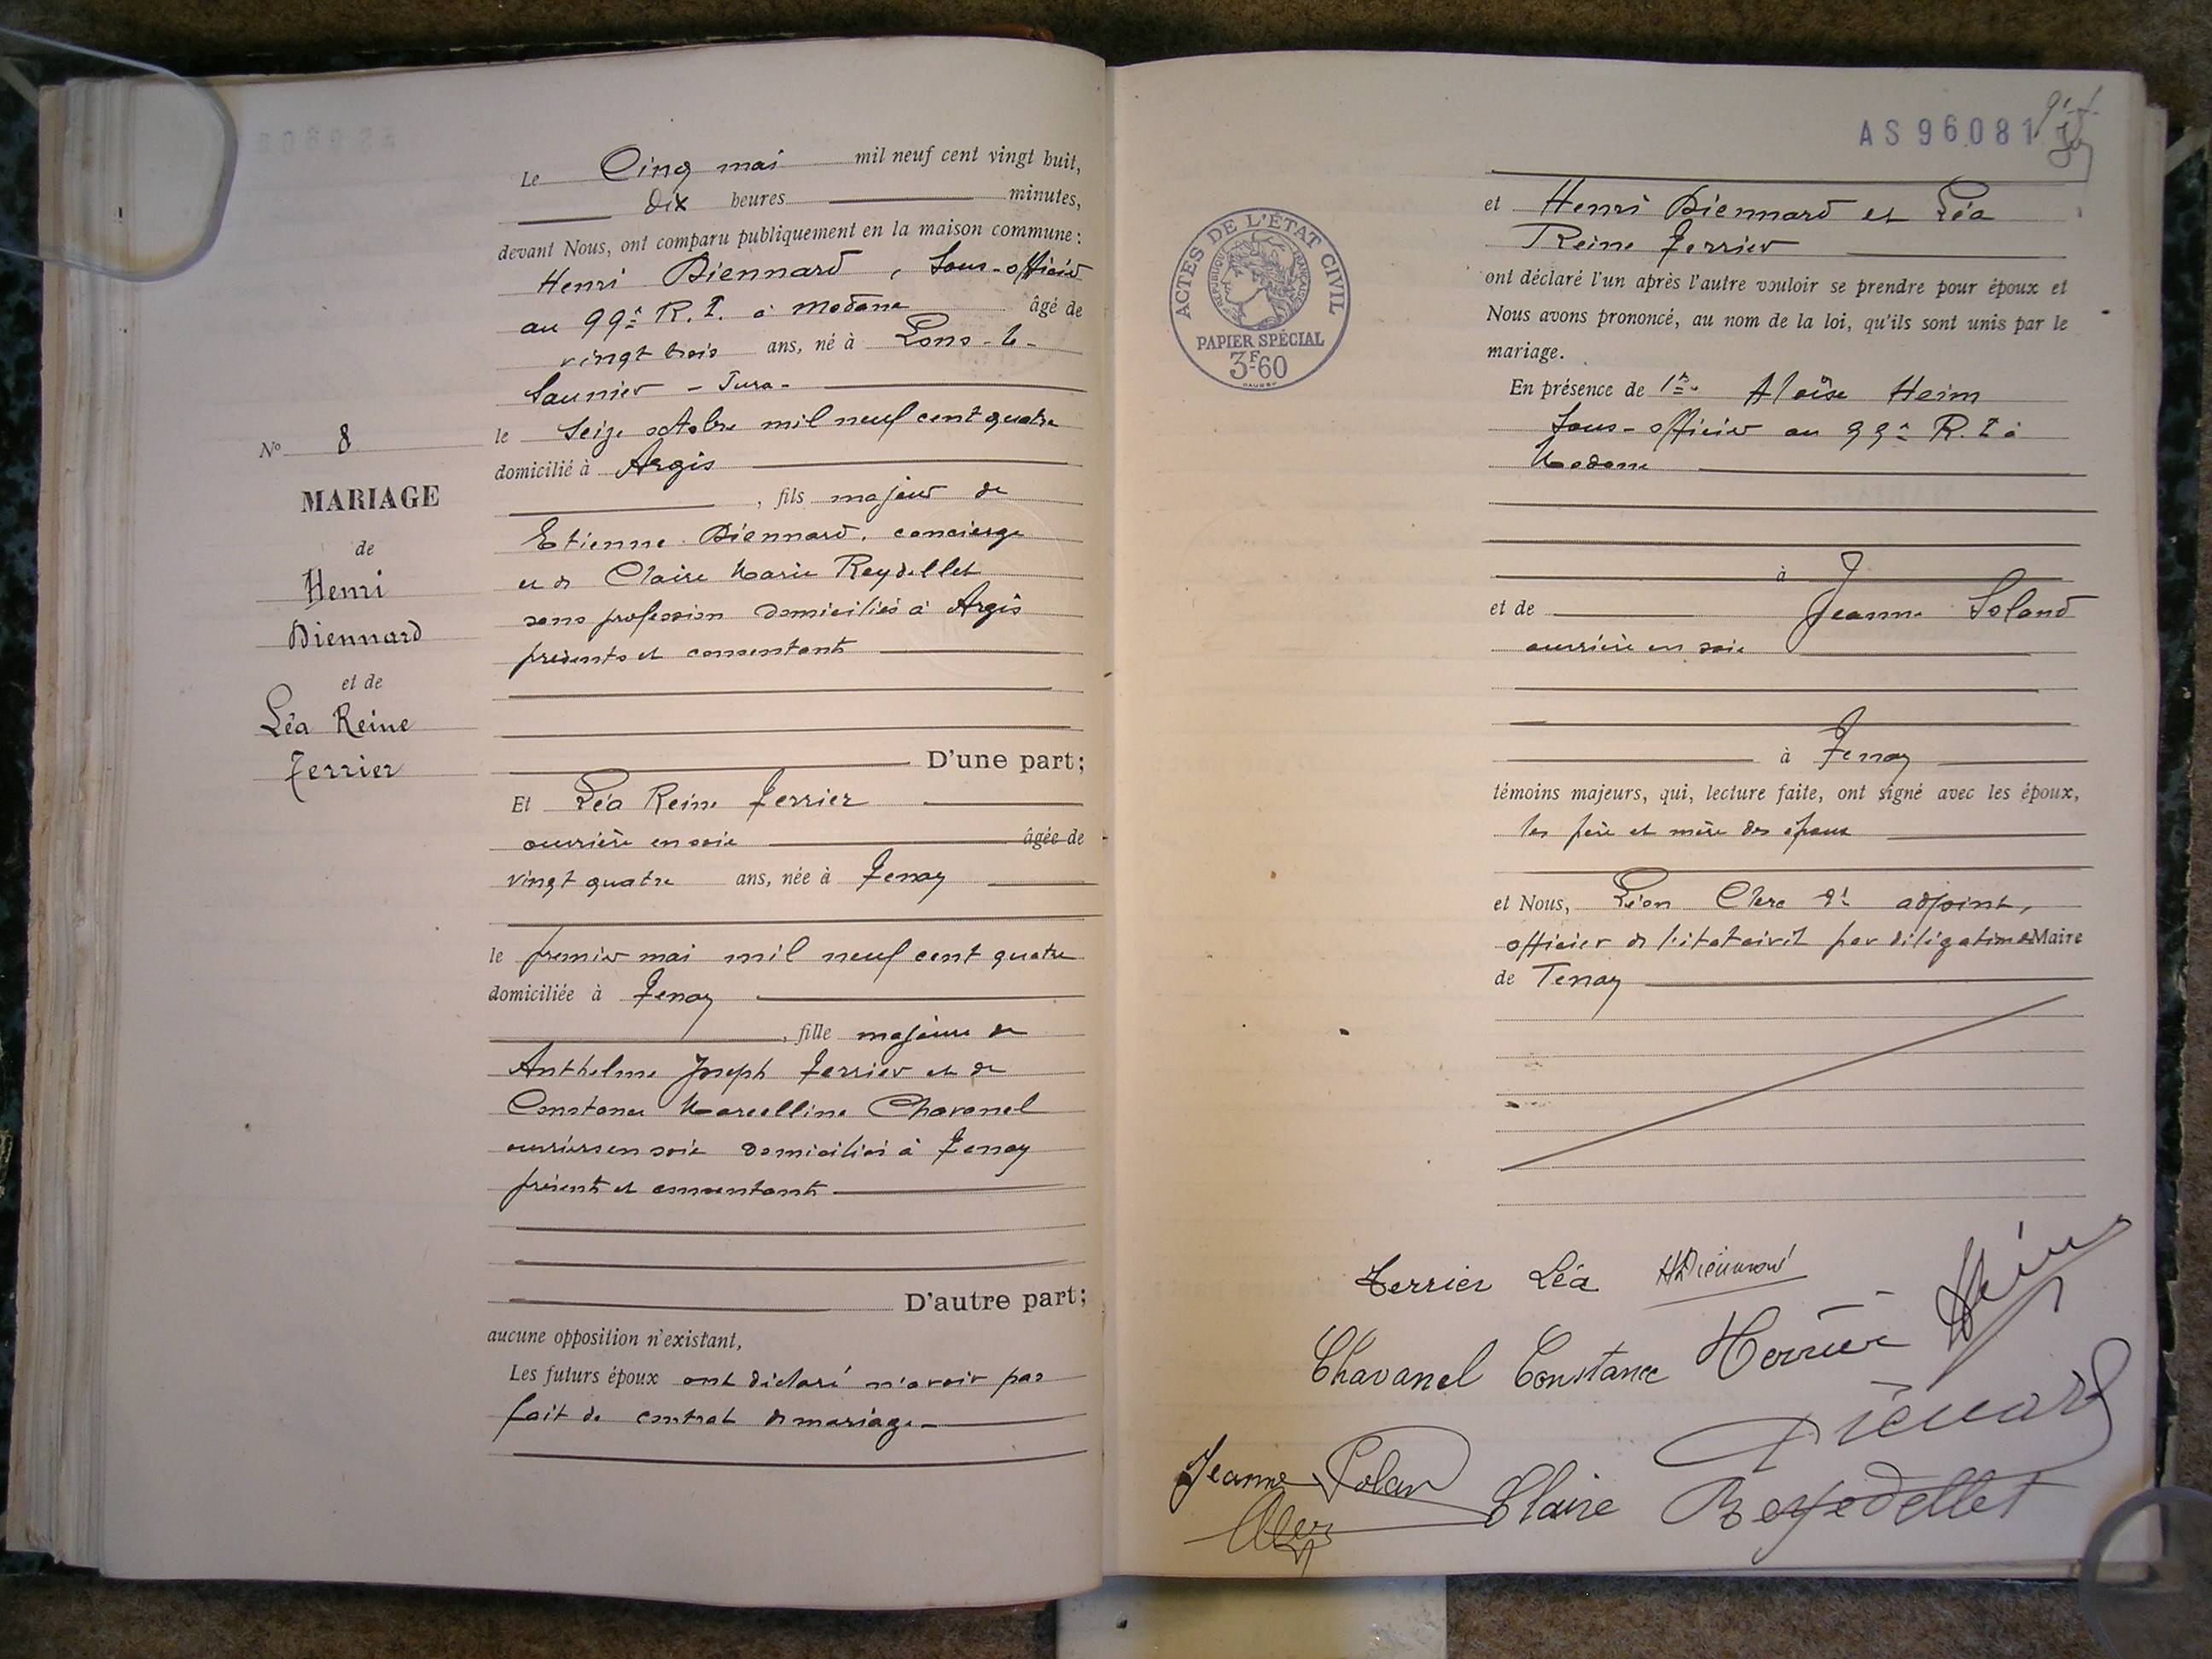 Le Cinq mai mil neuf cent vingt huit,
dix heures minutes,
devant Nous, ont comparu publiquement en la maison commune:
Henri Diennard, Sous-officier
au 99e R.I. à Modane âgé de
vingt trois ans, né à Lons-le-
Saunier - Jura -
le Seize octobre mil neuf cent quatre
domicilié à Argis
, fils majeur de
Etienne Diennard, concierge
et de Claire Marie Reydellet
sans profession domiciliés à Argis
présents et consentants
No 8
MARIAGE
de
Henri
Diennard
et de
Léa Reine
Terrier
D'une part;
Et Léa Reine Terrier
ouvrière en soie âgée de
vingt quatre ans, née à Tenay
le premier mai mil neuf cent quatre
domiciliée à Tenay
, fille majeure de
Anthelme Joseph Terrier et de
Constance Marcelline Chavanel
ouvriers en soie domiciliés à Tenay
présents et consentants
D'autre part;
aucune opposition n'existant,
Les futurs époux ont déclaré n'avoir pas
fait de contrat de mariage -
AS96081
ACTES DE L'ÉTAT CIVIL
RÉPUBLIQUE FRANÇAISE
PAPIER SPÉCIAL
3F.60
et Henri Diennard et Léa
Reine Terrier
ont déclaré l'un après l'autre vouloir se prendre pour époux et
Nous avons prononcé, au nom de la loi, qu'ils sont unis par le
mariage.
En présence de Aloïse Heim
Sous-officier au 99e R.I à
Modane
à
et de Jeanne Soland
ouvrière en soie
à Tenay
témoins majeurs, qui, lecture faite, ont signé avec les époux,
les père et mère des époux
et Nous, Léon Clerc adjoint,
officier de l'état civil par délégation du Maire
de Tenay
Terrier Léa HDiennard
Heim
Chavanel Constance Terrier
Diénard
Jeanne Solan
Claire Reydellet
Clerc